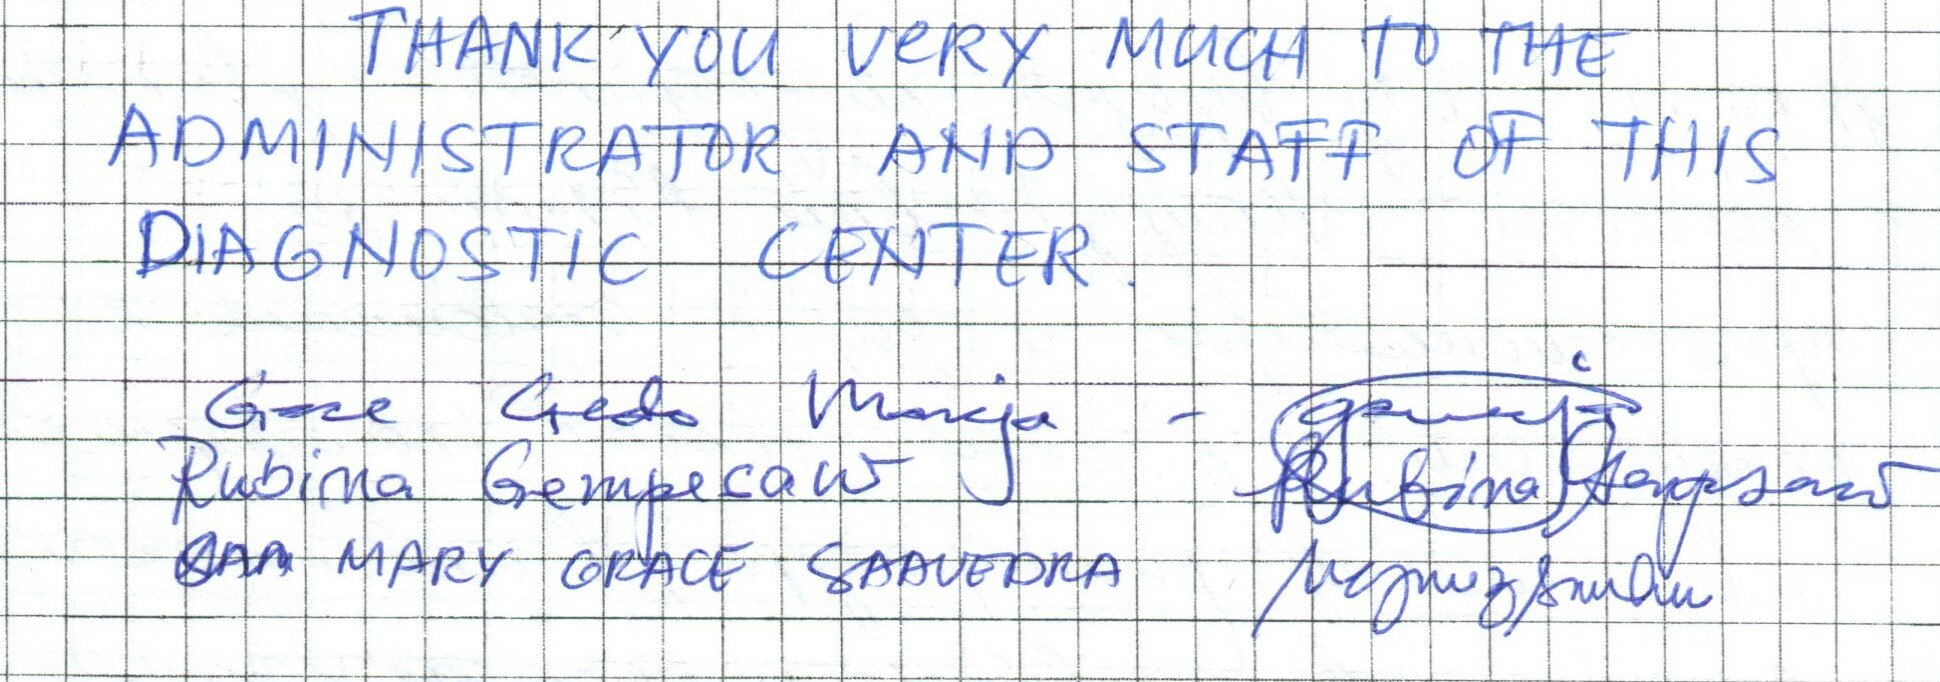 THANK YOU VERY MUCH TO THE
ADMINISTRATOR AND STAFF OF THIS
DIAGNOSTIC CENTER.
Grace
Rubina Gempesaw Rubina Gempesaw
MARY GRACE SAAVEDRA